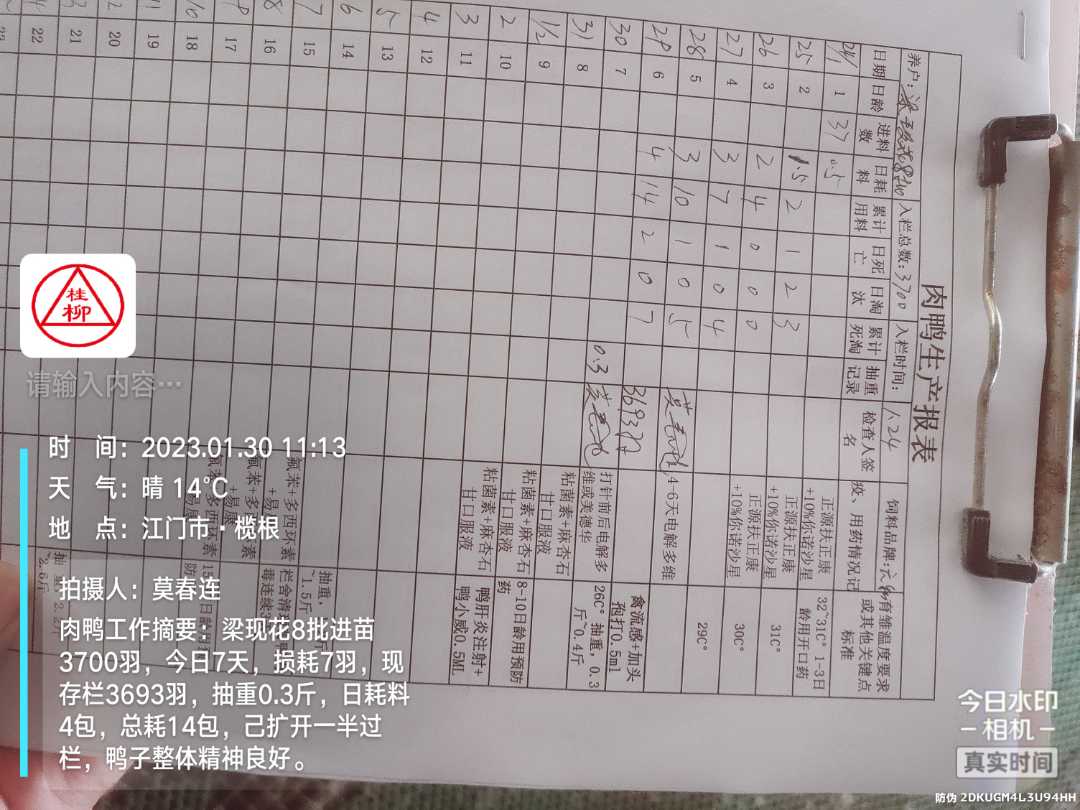 肉鸭生产报表
养户：梁现花8批 入栏总数：3700 入栏时间：1.24 饲料品牌：
日期 日龄 进料数 日耗料 累计用料 日死亡 日淘汰 累计死淘 抽重记录 检查人签名 疫、用药情况记 育雏温度要求或其他关键点标准
24/1 1 37 0.5 正源扶正康+10%你诺沙星 32~31C° 1-3日龄用开口药
25 2 1.5 2 1 2 3 正源扶正康+10%你诺沙星 31C°
26 3 2 4 0 0 0 正源扶正康+10%你诺沙星 30C°
27 4 3 7 1 0 4 29C°
28 5 3 10 1 0 5 莫春连 4-6天电解多维
29 6 4 14 2 0 7 3693羽 禽流感+加头孢打0.5ml
30 7 0.3 莫春连 打针前后电解多维或美德华 26C° 抽重，0.3斤~0.4斤
31 8 粘菌素+麻杏石甘口服液
1/2 9 粘菌素+麻杏石甘口服液 8-10日龄用预防药
2 10 粘菌素+麻杏石甘口服液 鸭肝炎注射+鸭小威0.5ML
3 11
4 12
5 13
6 14
7 15
8 16
9 17
10 18
11 19
20
21
22
桂柳
请输入内容…
时 间：2023.01.30 11:13
天 气：晴 14℃
地 点：江门市·榄根
拍摄人：莫春连
肉鸭工作摘要：梁现花8批进苗
3700羽，今日7天，损耗7羽，现
存栏3693羽，抽重0.3斤，日耗料
4包，总耗14包，己扩开一半过
栏，鸭子整体精神良好。
今日水印
相机
真实时间
防伪 2DKUGM4L3U94HH